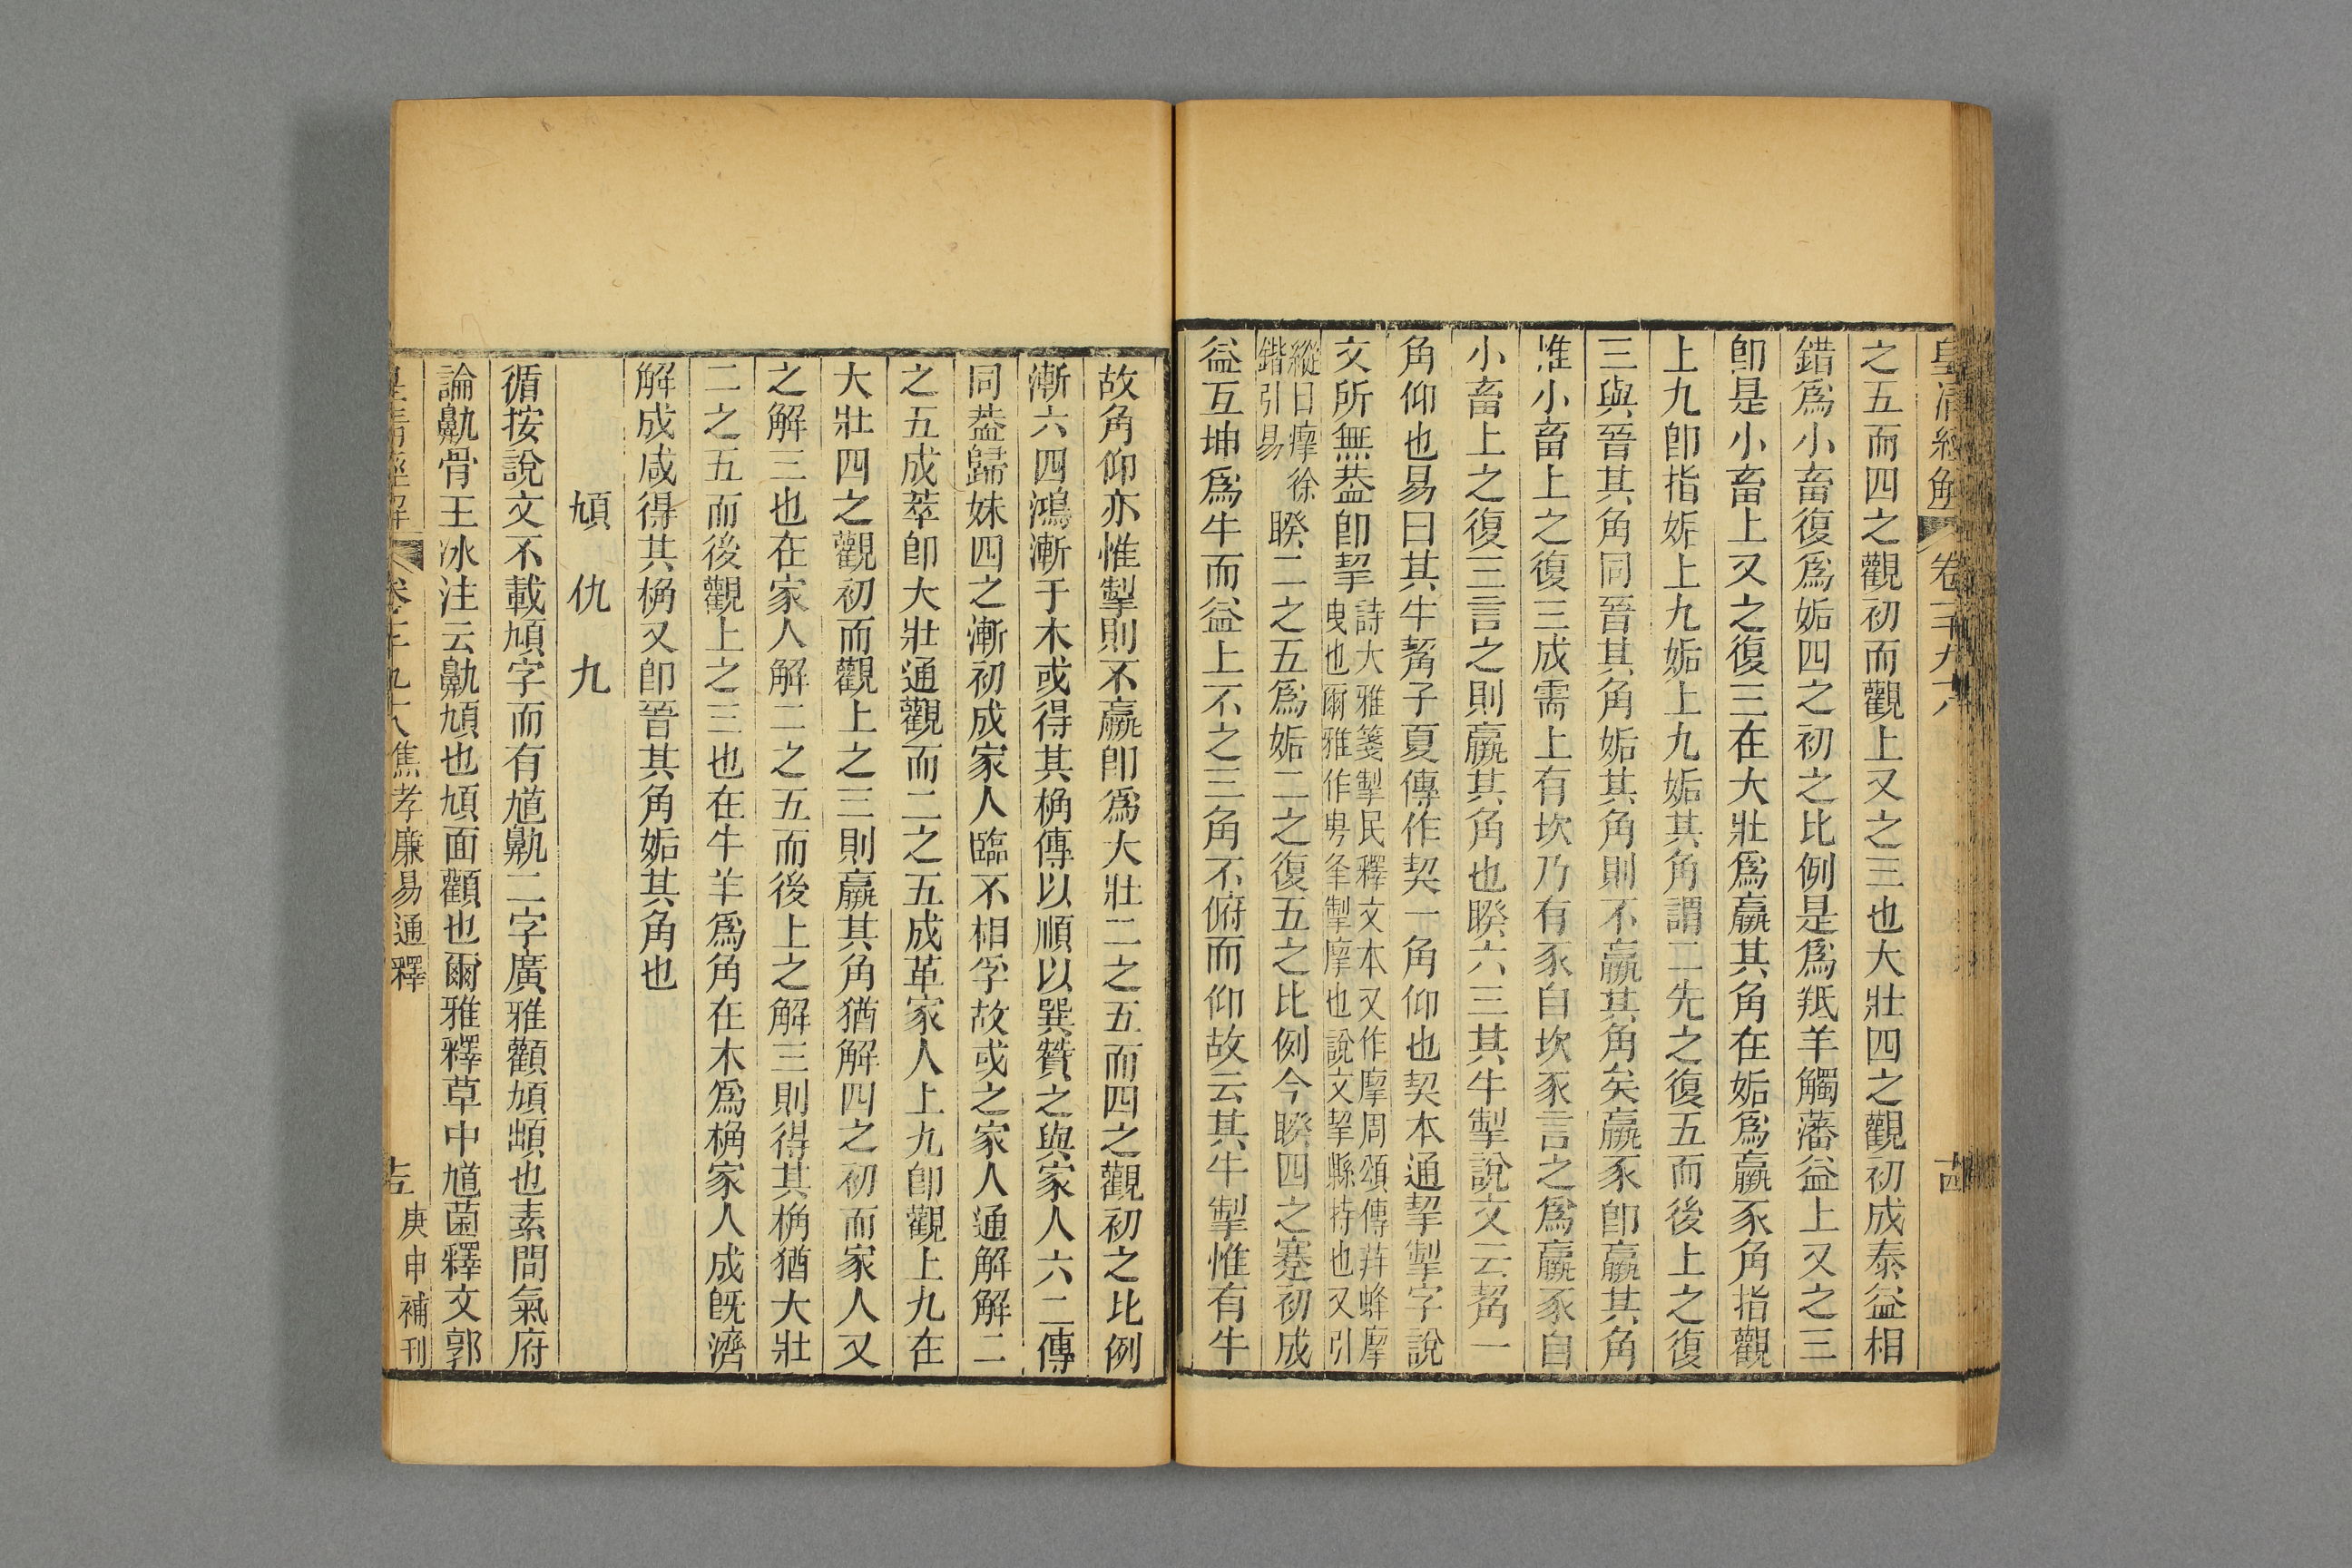 皇清經解 卷
之五而四之觀初而觀上又之三也大壯四之觀初成泰益相
錯爲小畜復爲姤四之初之比例是爲羝羊觸藩益上又之三
卽是小畜上又之復三在大壯爲羸其角在姤爲羸豕角指觀
上九卽指姤上九姤上九姤其角謂二先之復五而後上之復
三與晉其角同晉其角姤其角則不羸其角矣羸豕卽羸其角
惟小畜上之復三成需上有坎乃有豕自坎豕言之爲羸豕自
小畜上之復三言之則羸其角也睽六三其牛掣說文云觢一
角仰也易曰其牛觢子夏傳作契一角仰也契本通挈掣字說
文所無葢卽挈詩大雅箋掣民釋文本又作摩周頌傳荓蜂摩
曳也爾雅作甹夆掣摩也說文挈縣持也又引
縱曰𤸪徐
鍇引易
睽二之五爲姤二之復五之比例今睽四之蹇初成
益互坤爲牛而益上不之三角不俯而仰故云其牛掣惟有牛
故角仰亦惟掣則不羸卽爲大壯二之五而四之觀初之比例
漸六四鴻漸于木或得其桷傳以順以巽贊之與家人六二傳
同葢歸妹四之漸初成家人臨不相孚故或之家人通解解二
之五成萃卽大壯通觀而二之五成革家人上九卽觀上九在
大壯四之觀初而觀上之三則羸其角猶解四之初而家人又
之解三也在家人解二之五而後上之解三則得其桷猶大壯
二之五而後觀上之三也在牛羊爲角在木爲桷家人成旣濟
解成咸得其桷又卽晉其角姤其角也
頄 仇 九
循按說文不載頄字而有馗鼽二字廣雅顴頄䪼也素問氣府
論鼽骨王冰注云鼽頄也頄面顴也爾雅釋草中馗菌釋文郭
皇清經解 卷三百九十八 焦孝廉易通釋 庚申補刊